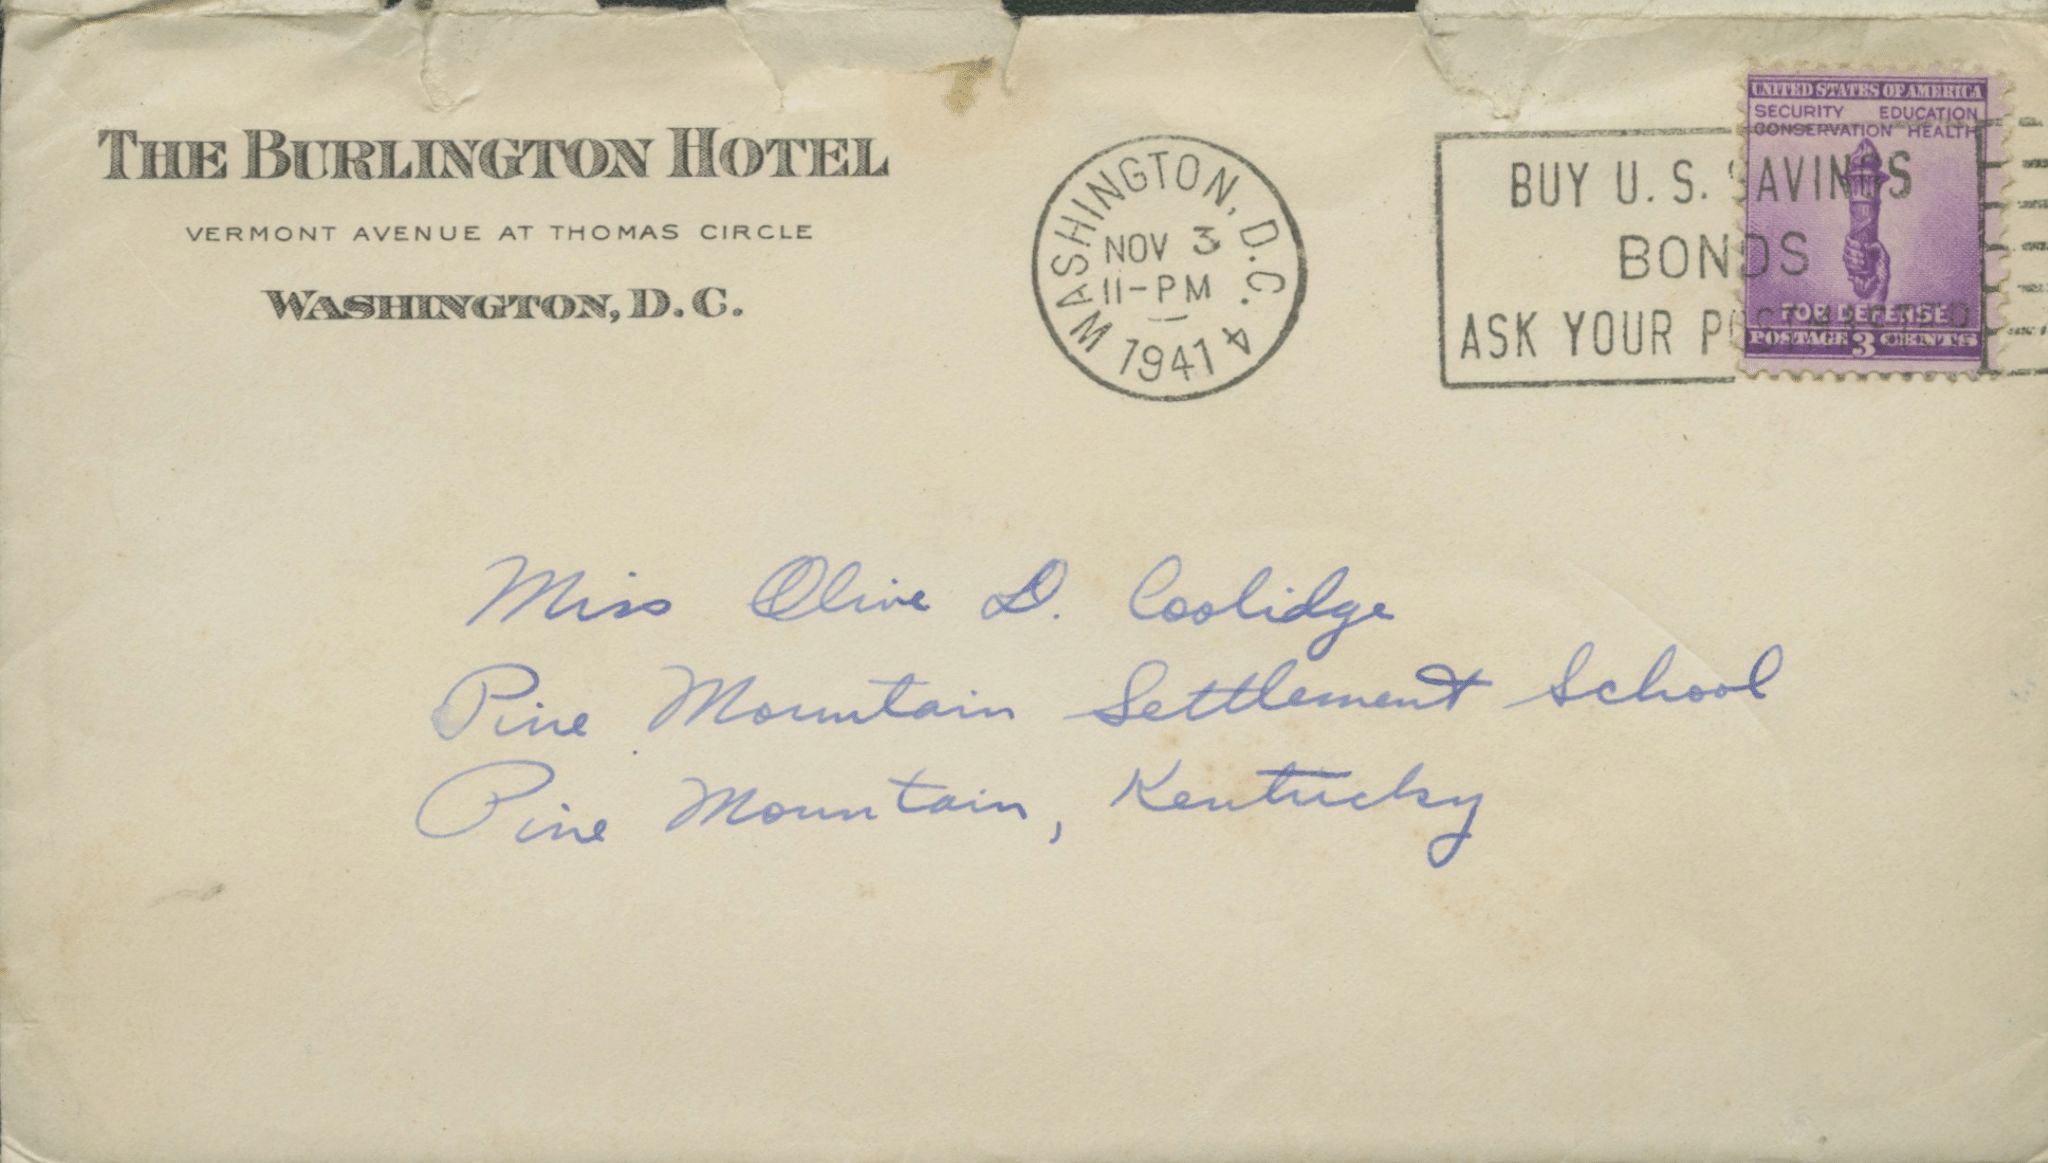 THE BURLINGTON HOTEL
VERMONT AVENUE AT THOMAS CIRCLE
WASHINGTON, D. C.
WASHINGTON, D.C. 4
NOV 3
11-PM
1941
BUY U. S. SAVINGS
BONDS
ASK YOUR POSTMASTER
UNITED STATES OF AMERICA
SECURITY EDUCATION
CONSERVATION HEALTH
FOR DEFENSE
POSTAGE 3 CENTS
Miss Olive D. Coolidge
Pine Mountain Settlement School
Pine Mountain, Kentucky